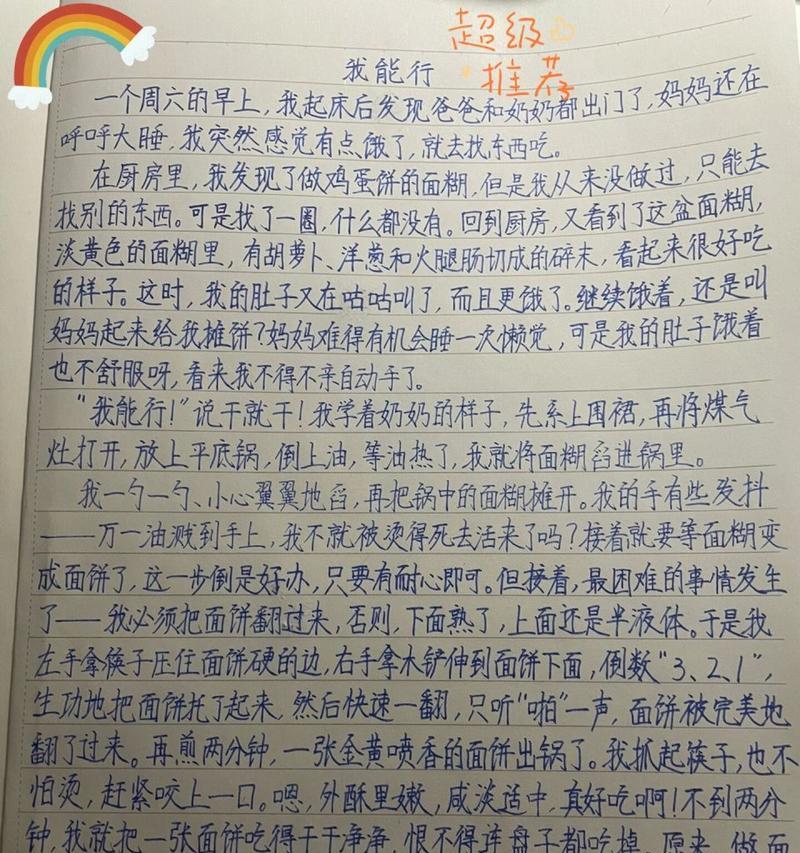 超级
推荐
我能行
一个周六的早上，我起床后发现爸爸和奶奶都出门了，妈妈还在
呼呼大睡，我突然感觉有点饿了，就去找东西吃。
在厨房里，我发现了做鸡蛋饼的面糊，但是我从来没做过，只能去
找别的东西。可是找了一圈，什么都没有。回到厨房，又看到了这盆面糊，
淡黄色的面糊里，有胡萝卜、洋葱和火腿肠切成的碎末，看起来很好吃
的样子。这时，我的肚子又在咕咕叫了，而且更饿了。继续饿着，还是叫
妈妈起来给我摊饼？妈妈难得有机会睡一次懒觉，可是我的肚子饿着
也不舒服呀，看来我不得不亲自动手了。
“我能行！”说干就干！我学着奶奶的样子，先系上围裙，再将煤气
灶打开，放上平底锅，倒上油，等油热了，我就将面糊舀进锅里。
我一勺一勺、小心翼翼地舀，再把锅中的面糊摊开。我的手有些发抖
——万一油溅到手上，我不就被烫得死去活来了吗？接着就要等面糊变
成面饼了，这一步倒是好办，只要有耐心即可。但接着，最困难的事情发生
了——我必须把面饼翻过来，否则，下面熟了，上面还是半液体。于是我
左手拿筷子压住面饼硬的边，右手拿木铲伸到面饼下面，倒数“3、2、1”，
生功地把面饼托了起来，然后快速一翻，只听“啪”一声，面饼被完美地
翻了过来。再煎两分钟，一张金黄喷香的面饼出锅了。我抓起筷子，也不
怕烫，赶紧咬上一口。嗯，外酥里嫩，咸淡适中，真好吃啊！不到两分
钟，我就把一张面饼吃得干干净净，恨不得连盘子都吃掉。原来，做面